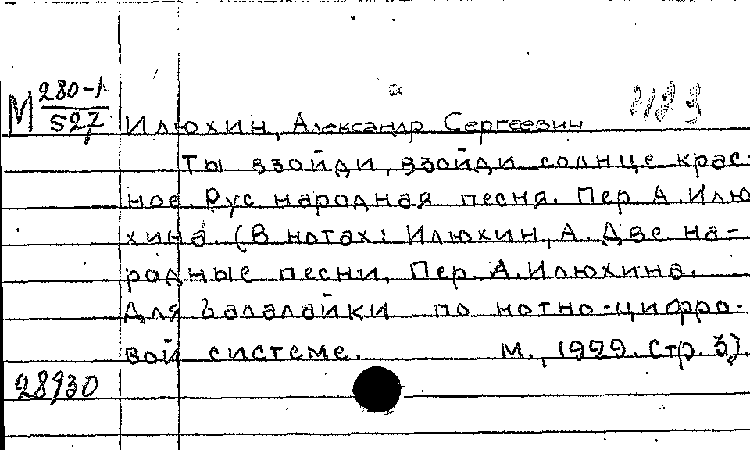 М 280-1
527
Илюхин, Александр Сергеевич
Ты взойди, взойди солнце крас-
ное. Рус. народная песня. Пер. А. Илю-
хина. (В нотах: Илюхин, А. Две на-
родные песни. Пер. А. Илюхина.
Для балалайки по нотно-цифро-
вой системе. М., 1929. Стр. 3).
28930